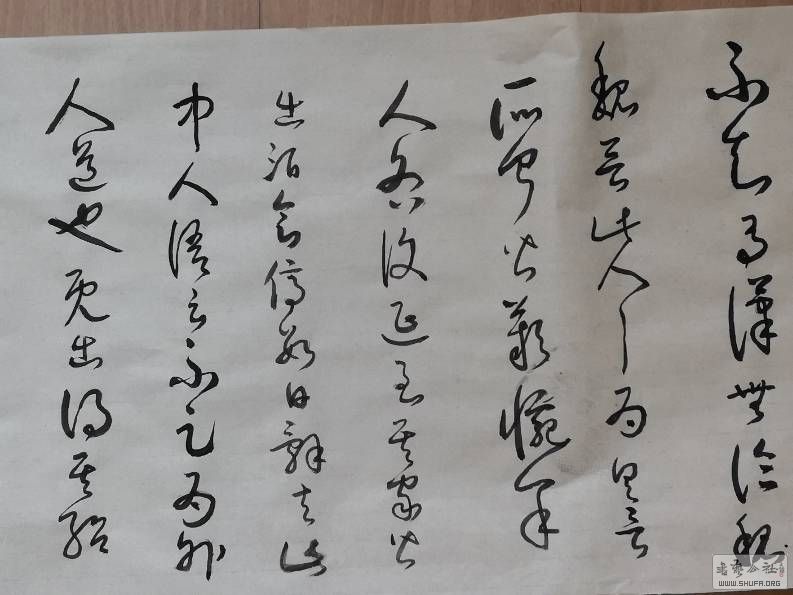 不知有漢無論魏
魏晋此人一一为具言
所聞皆歎惋餘
人各復延至其家皆
出酒食停数日辞去此
中人语云不足为外
人道也既出得其船
書法公社
WWW.SHUFA.ORG